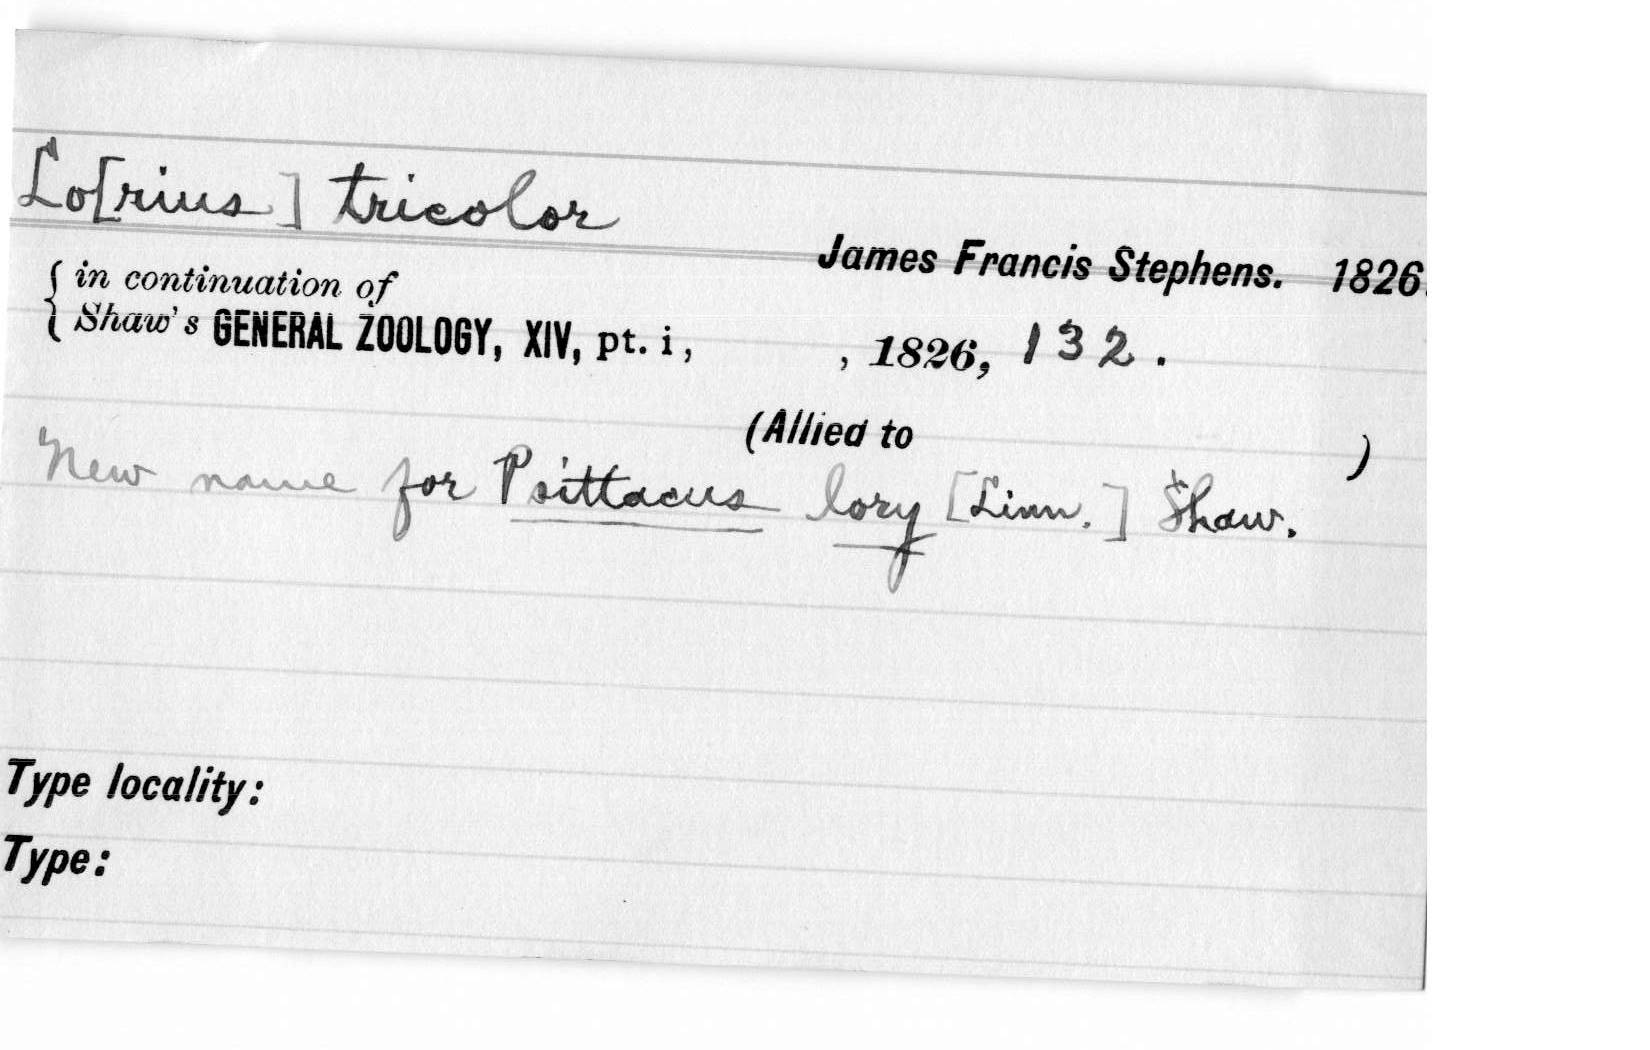 Lo[rius] tricolor
James Francis Stephens. 1826.
in continuation of
Shaw's GENERAL ZOOLOGY, XIV, pt. i, , 1826, 132.
(Allied to )
New name for Psittacus lory [Linn.] Shaw.
Type locality:
Type: